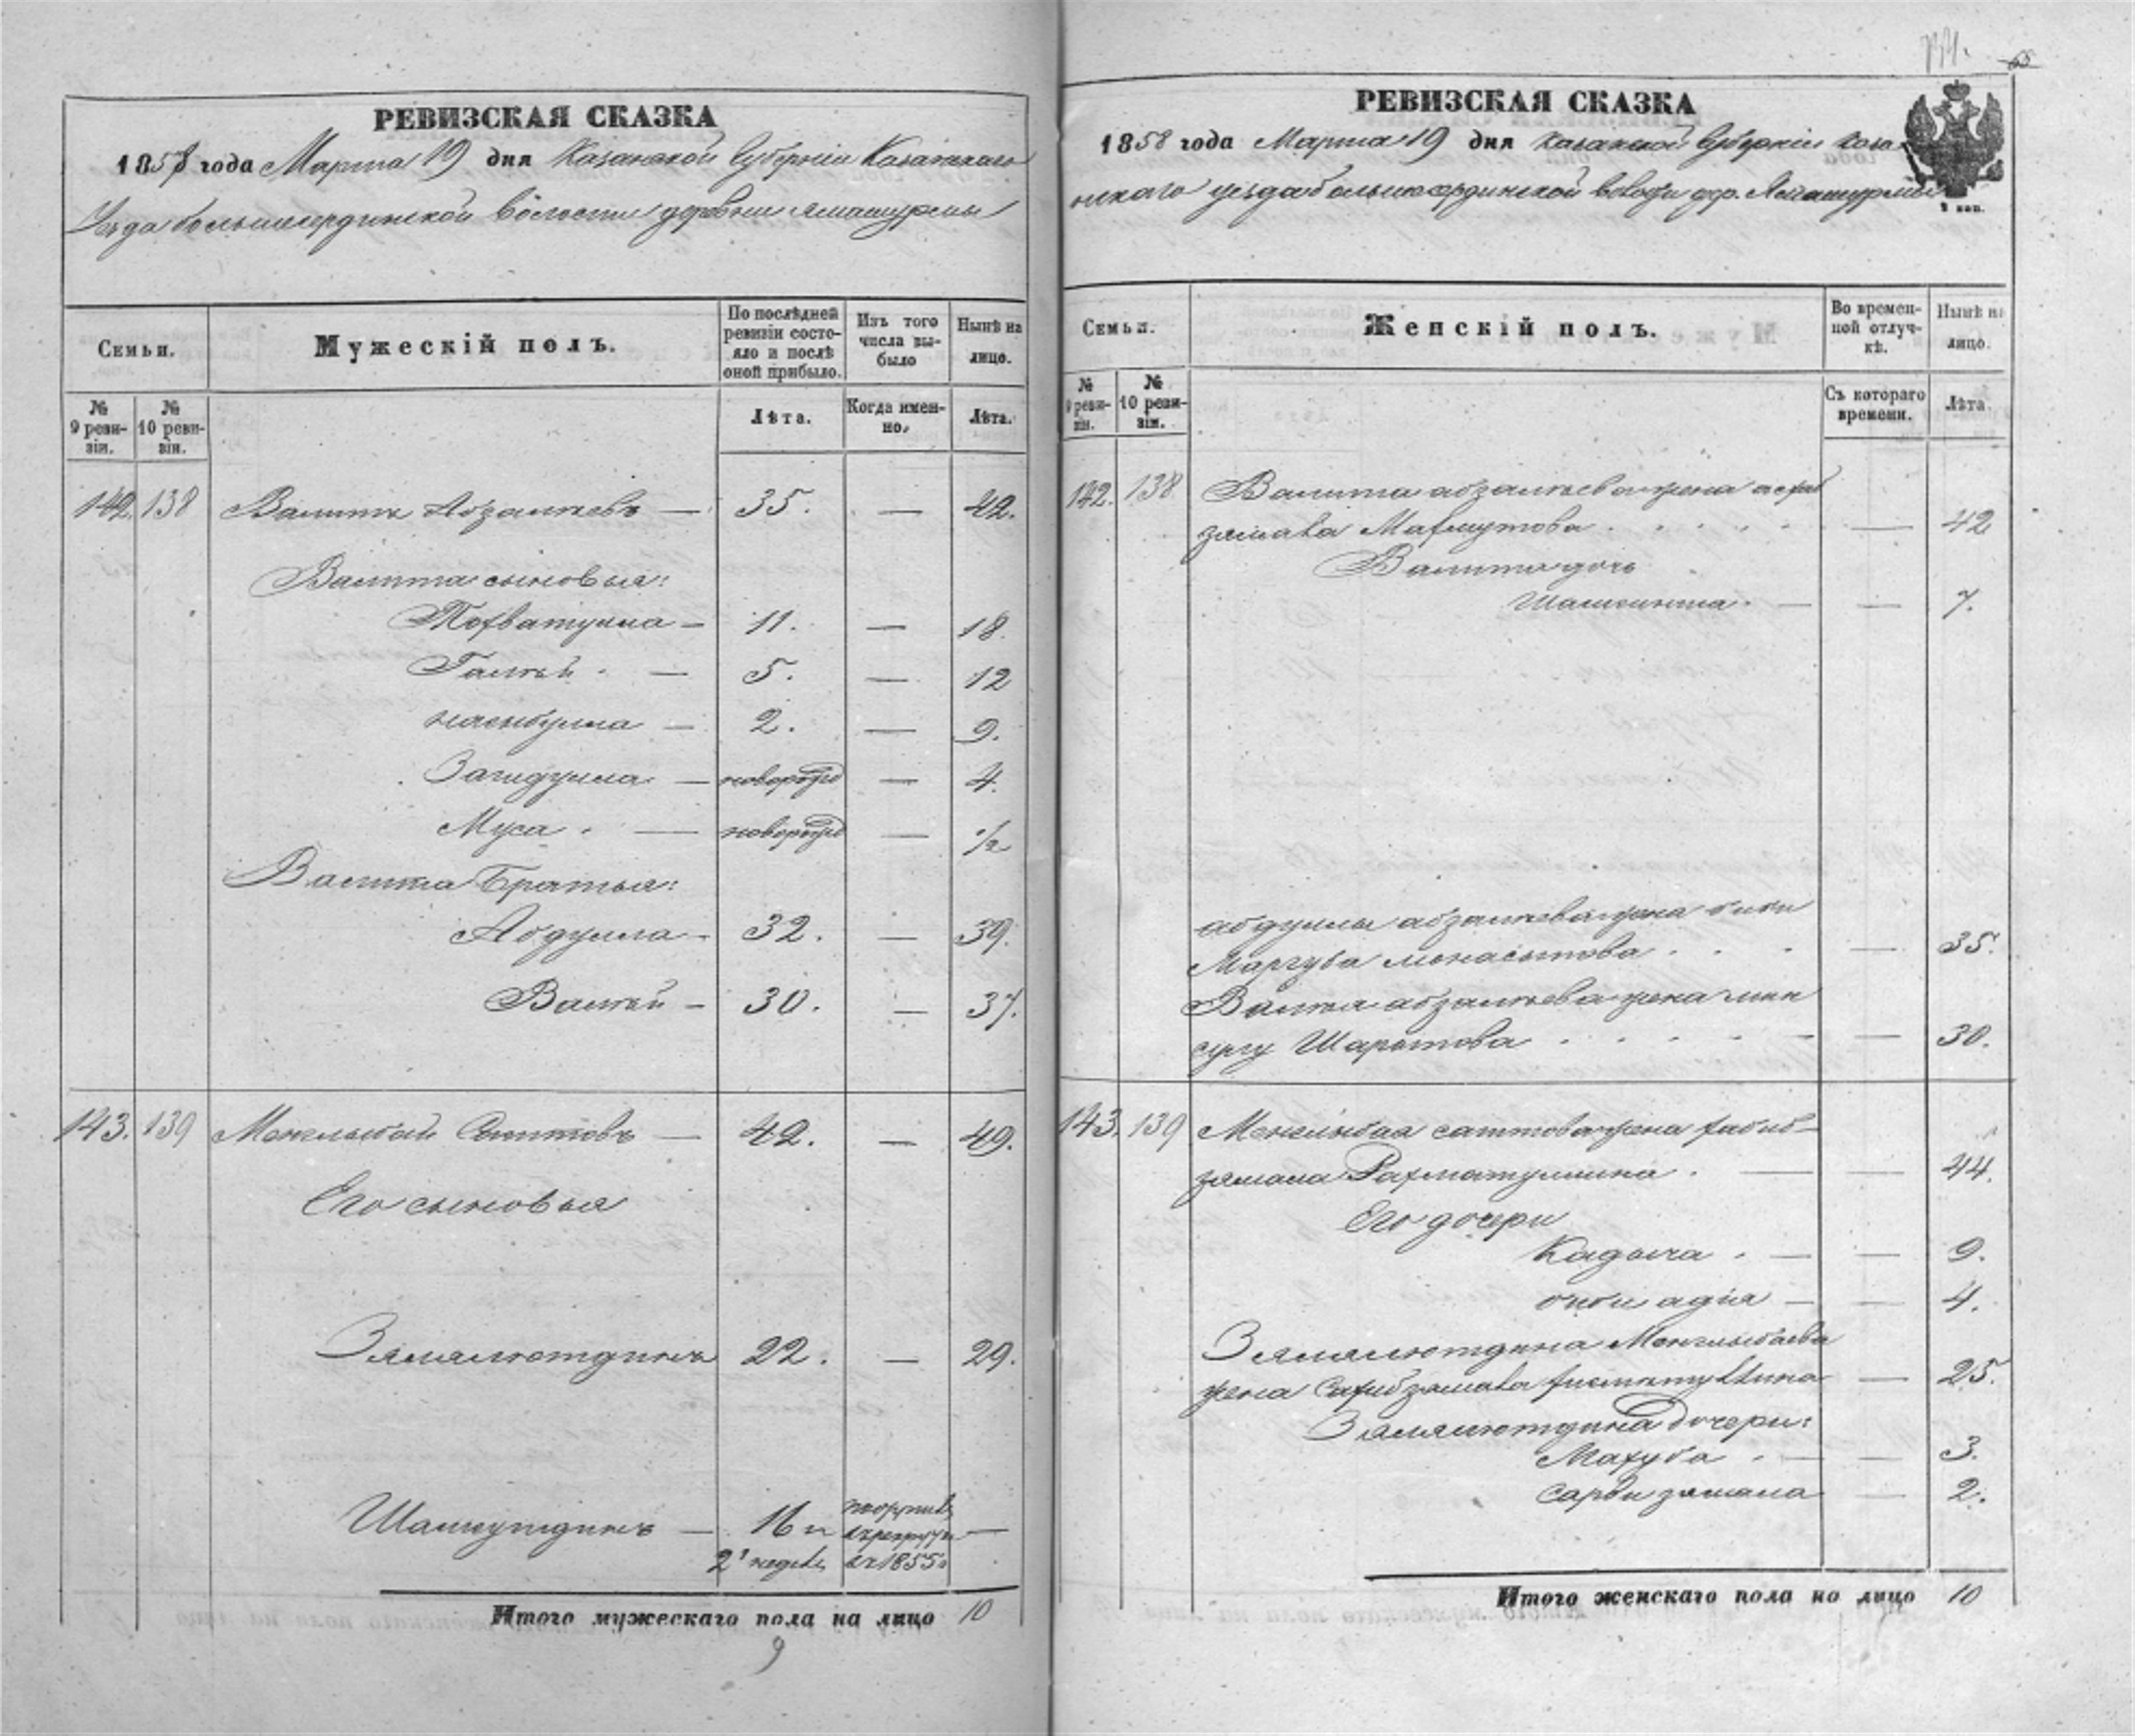 РЕВИЗСКАЯ СКАЗКА
1858 года Марта 19 дня Казанской Губернии Казанскаго
Уезда большесердинской волости деревни Ямашурмы
Семьи.
Мужескій полъ.
По послѣдней ревизіи состояло и послѣ оной прибыло.
Изъ того числа выбыло
Нынѣ на лицо.
№ 9 ревизіи.
№ 10 ревизіи.
Лѣта.
Когда именно.
Лѣта.
142. 138 Валитъ Абзалиевъ — 35. — 42.
Валита сыновья:
Тохватулла — 11. — 18.
Галей — 5. — 12
2. — 9.
Загидулла — новорожд — 4.
Муса — новорожд — 1/2
Валита Братья:
Абдулла — 32. — 39.
Валей — 30. — 37.
143. 139 Менглыбай Саитовъ — 42. — 49.
Его сыновья
Зямалютдинъ 22. — 29.
Шамсутдинъ — 16 и
2 недел. 1855
Итого мужескаго пола на лицо 10
9
734.
65
РЕВИЗСКАЯ СКАЗКА
1858 года Марта 19 дня Казанской Губернии Каза
нскаго уезда большесердинской волости дер. Ямашурмы
Семьи.
Женскій полъ.
Во временной отлучкѣ.
Нынѣ на лицо.
№ 9 ревизіи.
№ 10 ревизіи.
Съ котораго времени.
Лѣта.
142. 138 Валита абзалиева жена
Махмутова — 42
Валита дочь
7.
абдуллы абзалиева жена биби
Маргуба — 35.
Валея абзалиева жена мин
сулу Шарыпова — 30.
143. 139 Менглыбая саитова жена хабиб-
зямала Рахматуллина — 44.
Его дочери
Кадыча — 9.
биби адія — 4.
Зямалютдина Менглыбаева
жена Сахибзямала — 25.
Зямалютдина дочери:
Махуба — 3.
Сарби зямала — 2.
Итого женскаго пола но лицо 10